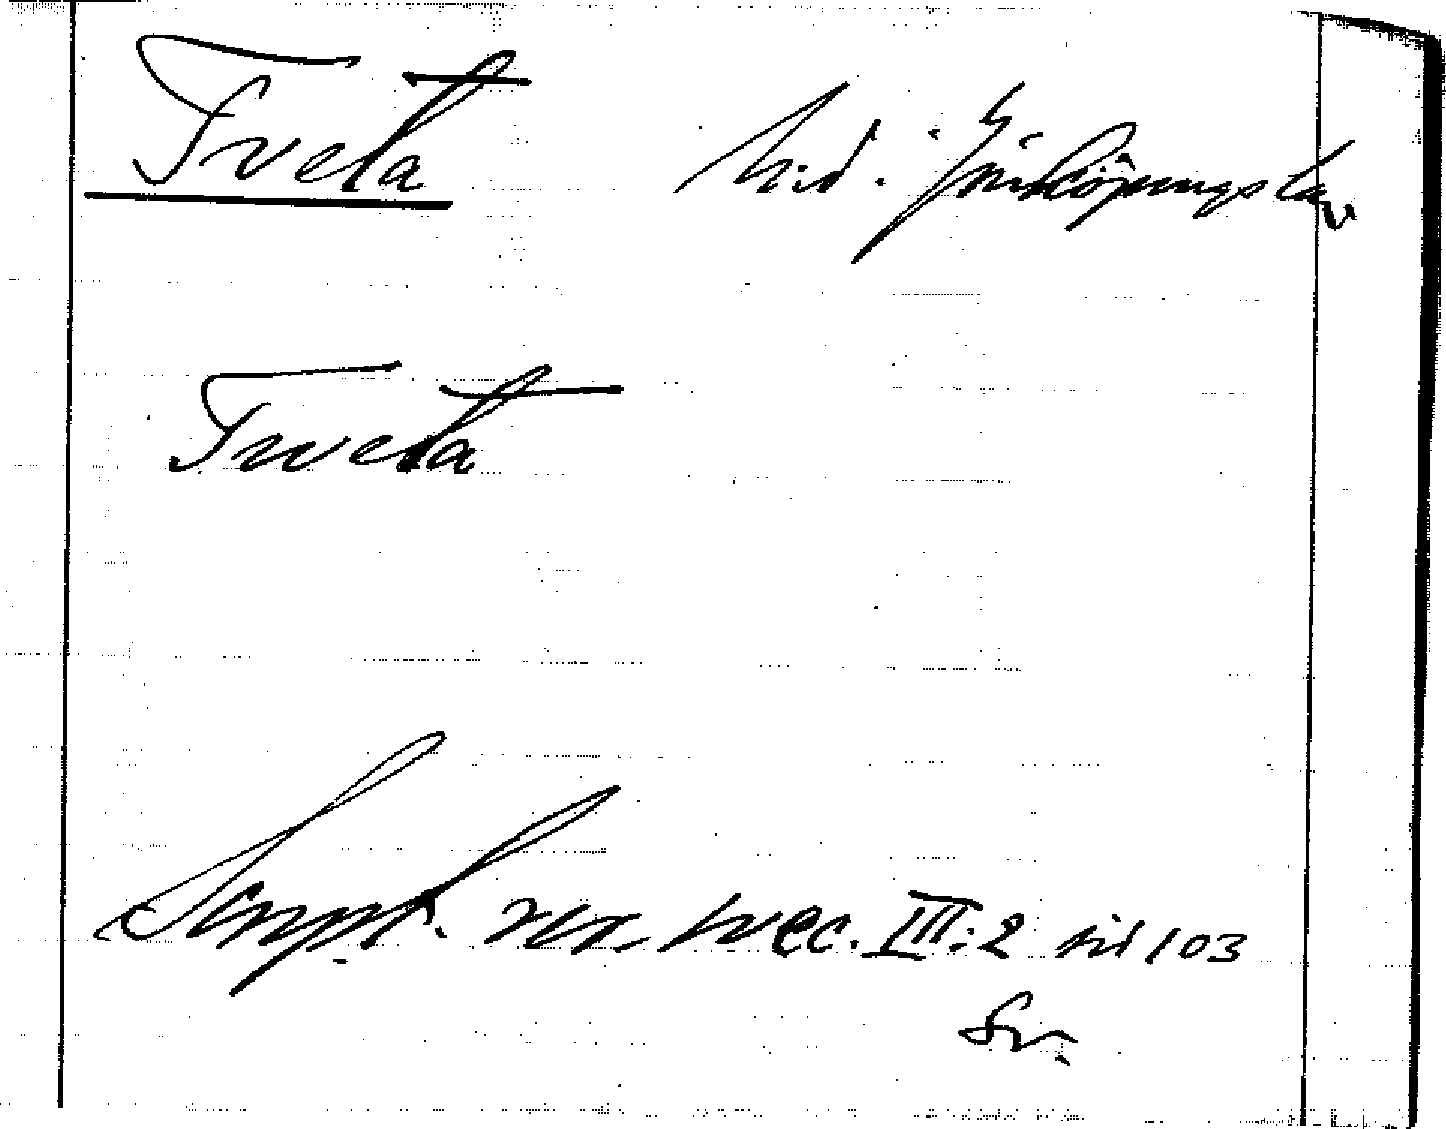 Tveta hd. Jönköpings län
Tweta
Script. rer. svec. III:2 sid 103
Sv.